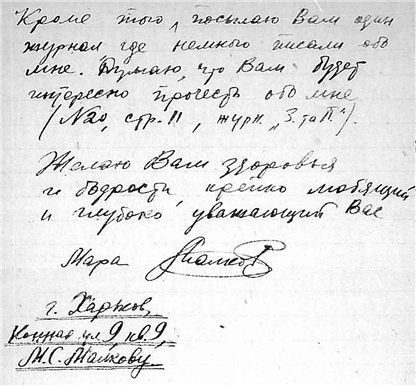 Кроме того, посылаю Вам один
журнал где немного писали обо
мне. Думаю, что Вам будет
интересно прочесть обо мне
(N20, стр. 11, журн. „З. та П").
Желаю Вам здоровья
и бодрости крепко любящий
и глубоко уважающий Вас
Мара
г. Харьков,
Конная ул 9 кв. 9,
М. С. Малкову.